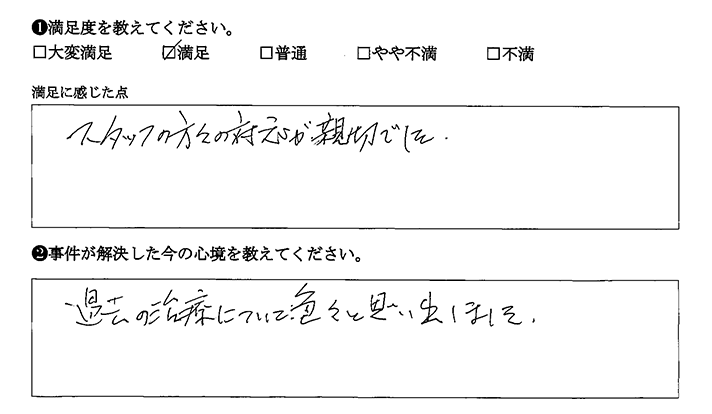 ❶満足度を教えてください。
□大変満足 ☑満足 □普通 □やや不満 □不満
満足に感じた点
スタッフの方々の対応が親切でした.
❷事件が解決した今の心境を教えてください。
過去の治療について色々と思い出しました.